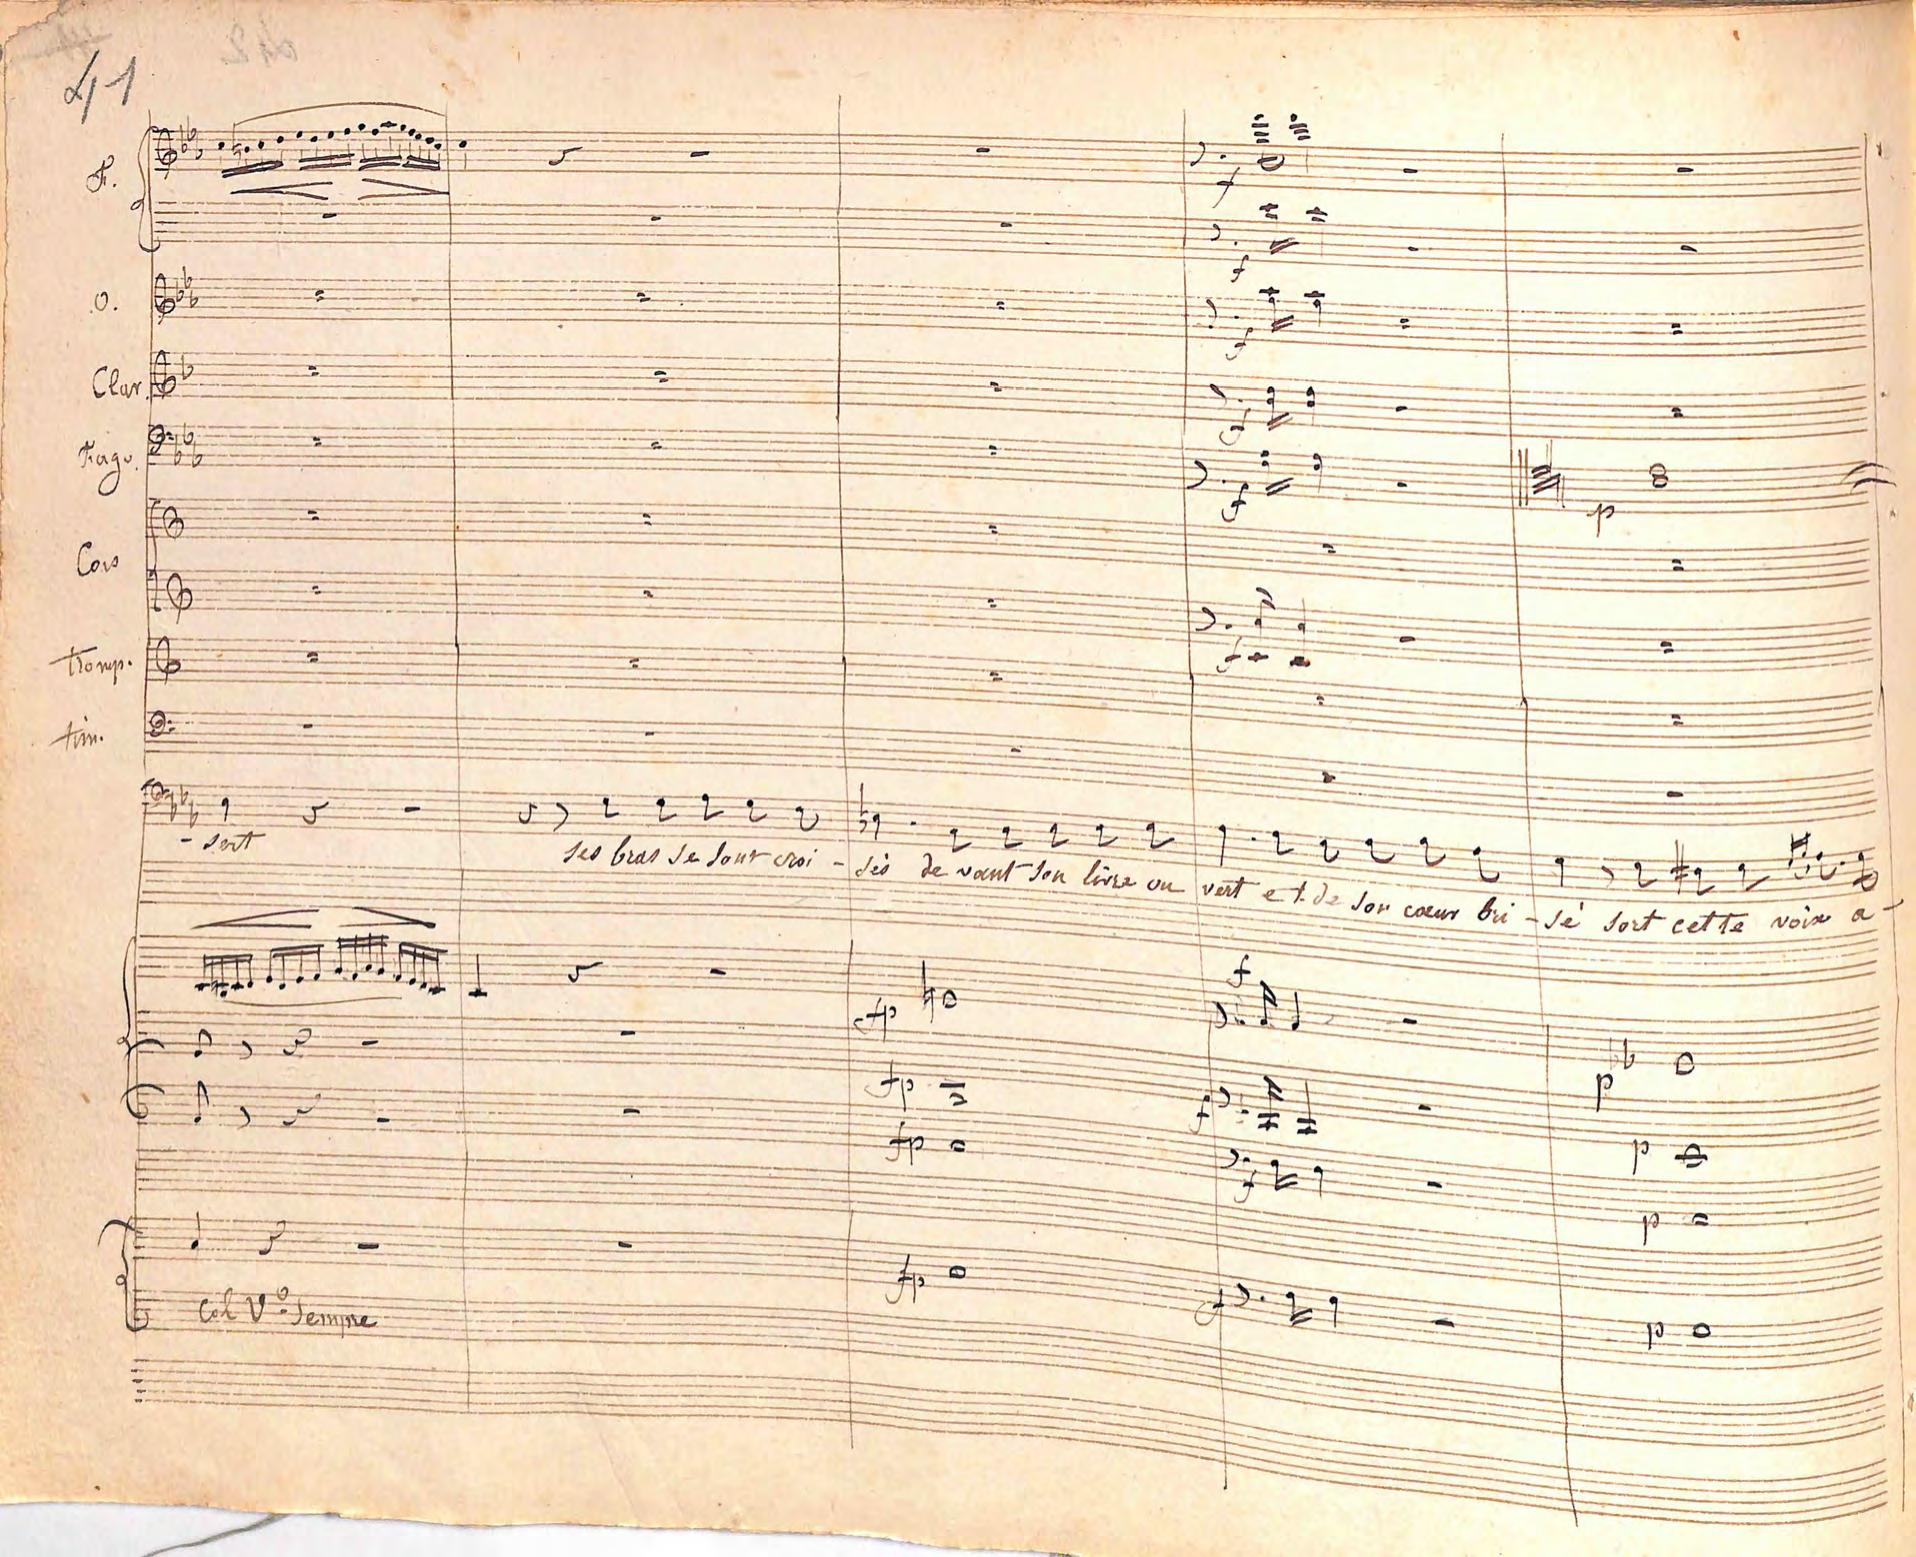 41
42
F.
f
f
O.
f
Clar.
f
Fago.
f
p
Cors
f
Tromp.
tim.
- sert ses bras se sont croi - sés de vant son livre ou vert et de son cœur bri - sé sort cette voix a -
f
fp
p
fp
f
p
fp
f
p
fp
f
p
Col Vo. Sempre